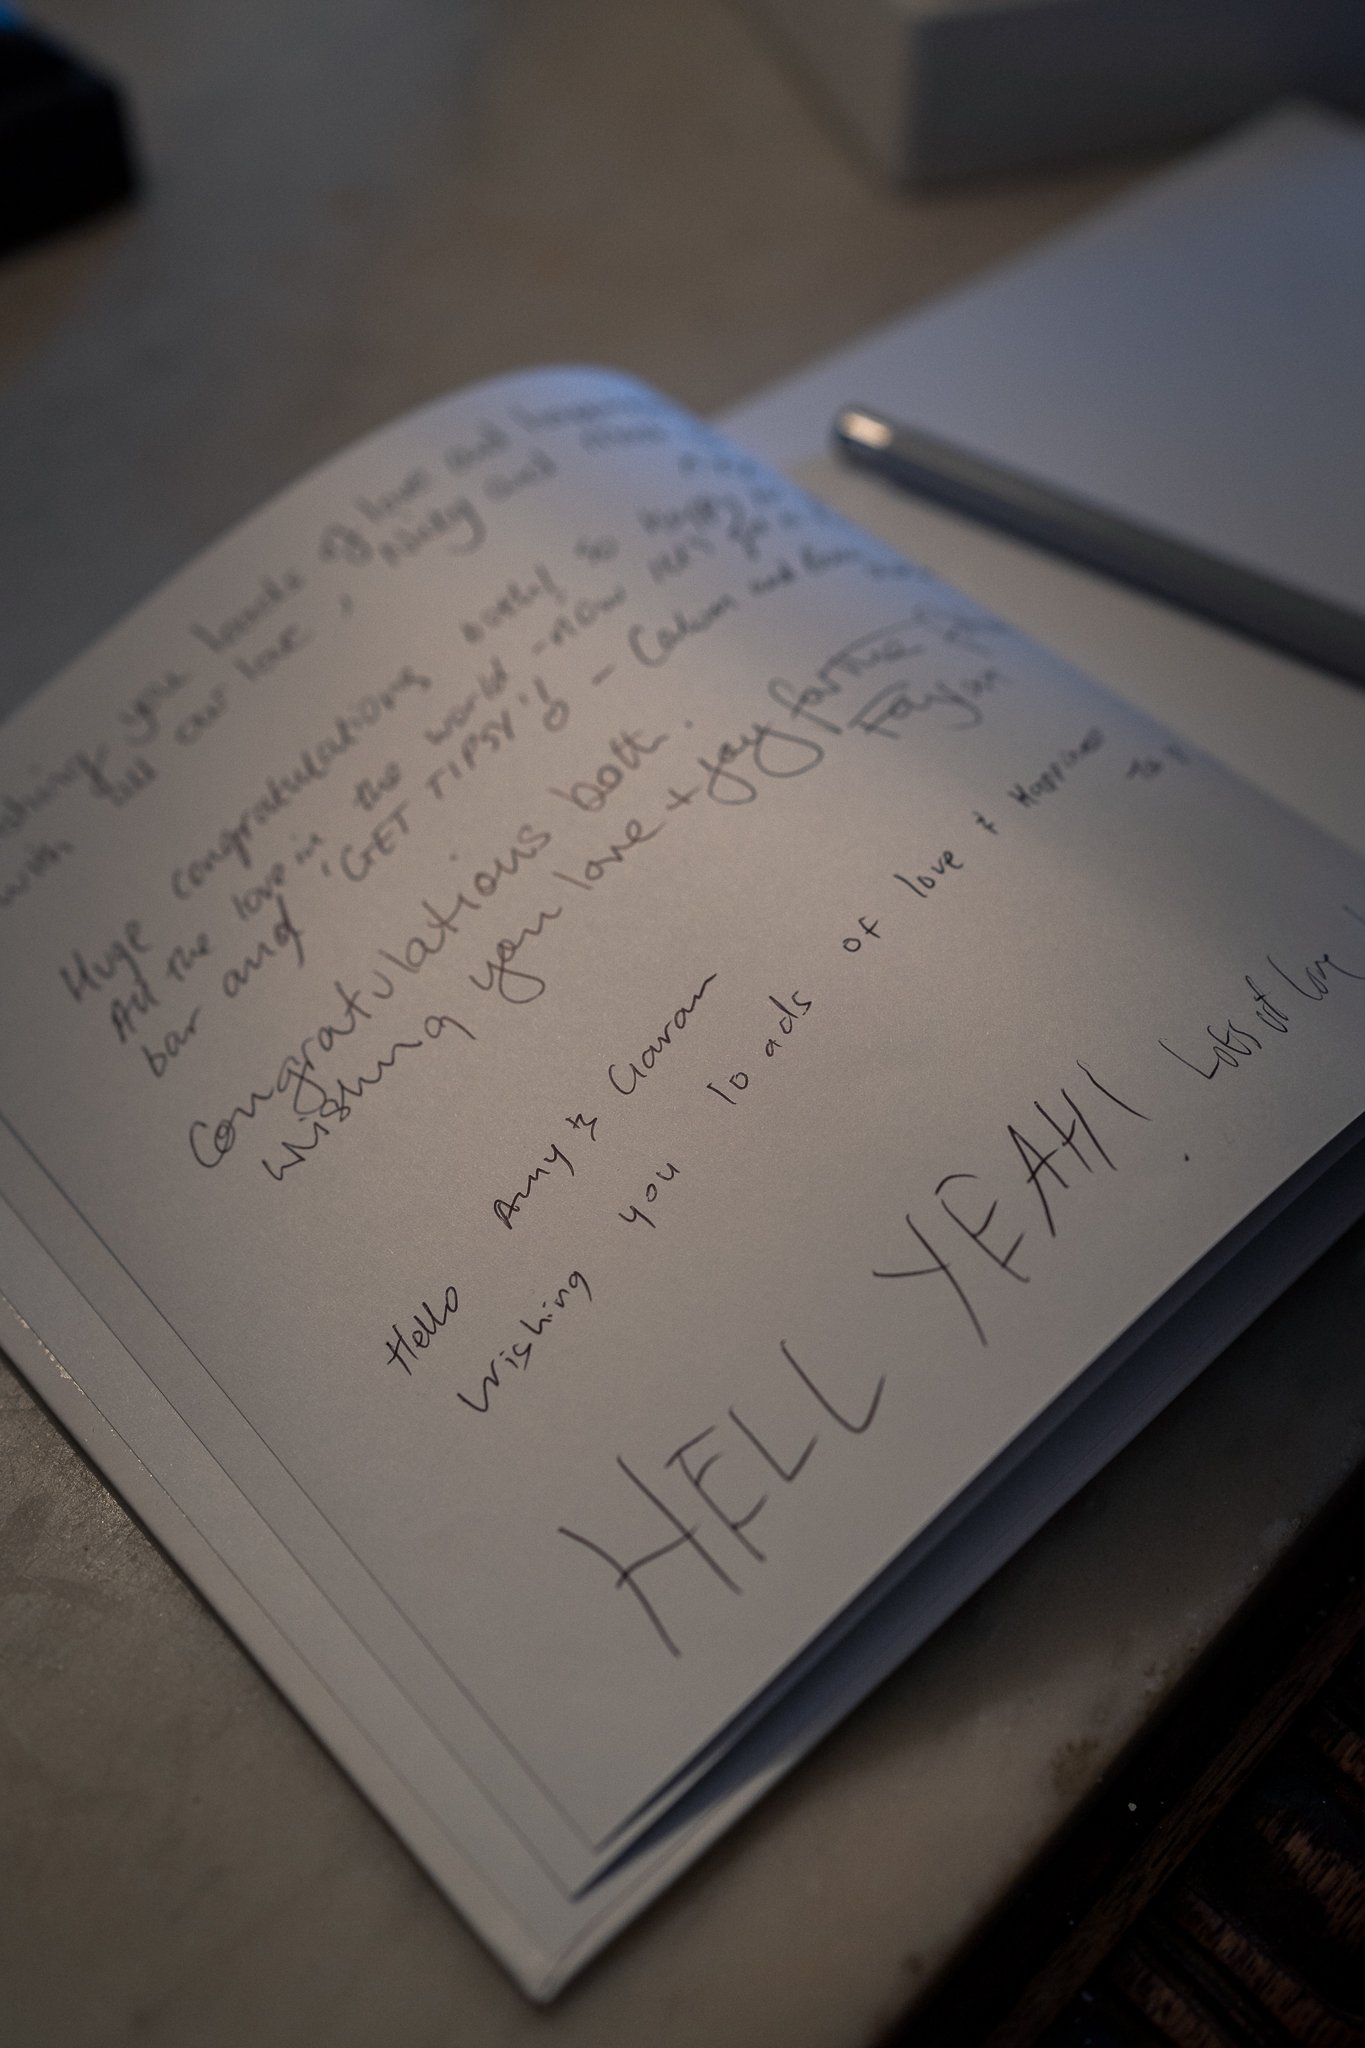 you loads of love and
with all our love,
Huge congratulations both! so happy
All the love in the world - now let's
bar and 'GET TIPSY'! - Calum and
Congratulations both.
wishing you love + joy for the
Hello Amy & Ciaran
wishing you loads of love & Happiness
HELL YEAH! Lots of love